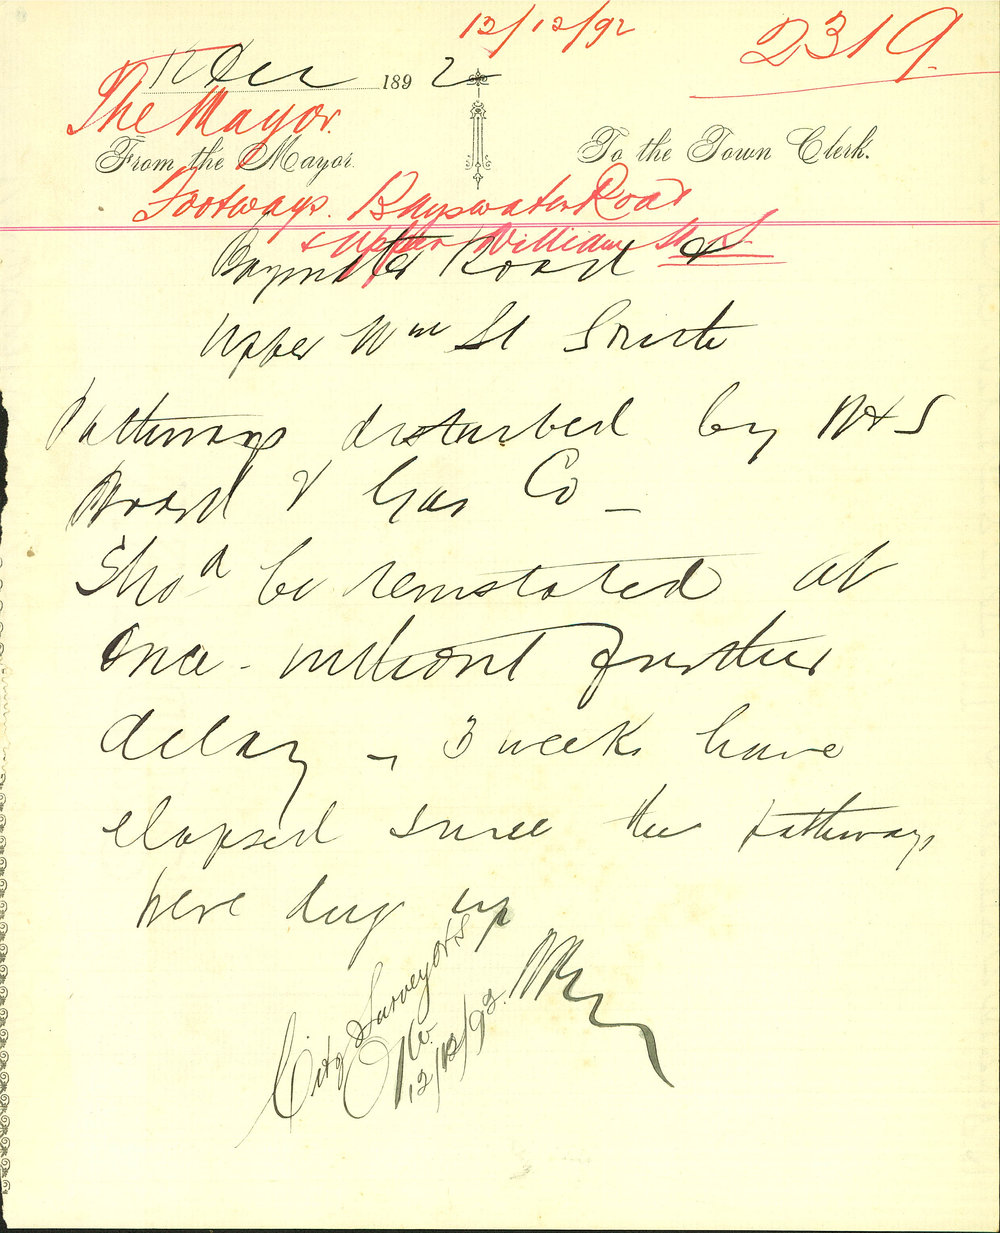 12/12/92
2319
12 Dec 1892
The Mayor.
From the Mayor. To the Town Clerk.
Footways. Bayswater Road
& Upper William St S.
Bayswater Road &
Upper Wm St South
Pathways disturbed by W & S
Board & Gas Co —
Shod be reinstated at
once - without further
delay - 3 weeks have
elapsed since the pathways
were dug up
City Surveyor
12/12/92.